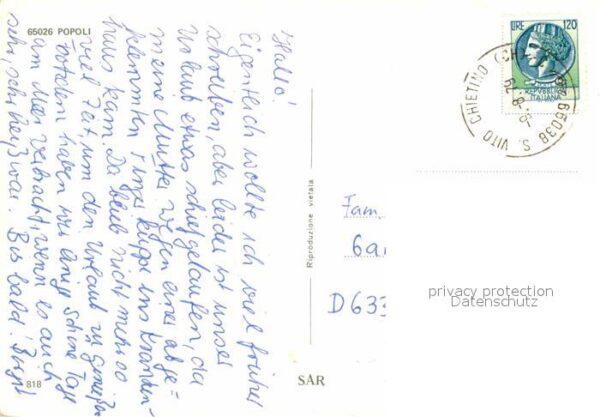 65026 POPOLI
Hallo!
Eigentlich wollte ich viel früher
schreiben, aber leider ist unser
Urlaub etwas schief gelaufen, da
meine Mutter wegen einer abge-
klemmten Fingerkuppe ins Kranken-
haus kam. Da blieb nicht mehr so
viel Zeit, um den Urlaub zu genießen
trotzdem haben wir einige schöne Tage
am Meer verbracht, wenn es auch
sehr, sehr heiß war. Bis bald!
818
Riproduzione vietata
SAR
LIRE 120
REPUBBLICA
ITALIANA
66038 S. VITO CHIETINO (CH)
Fam.
D 633
privacy protection
Datenschutz